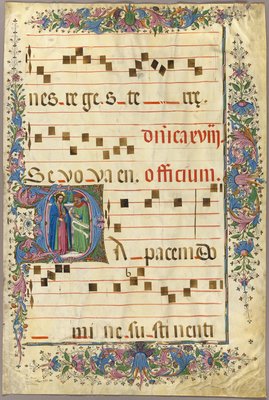 nes re ge. s te rre.
dñica xviij.
Se vo va en. officium.
Da pacem Do
mi ne su sti nenti